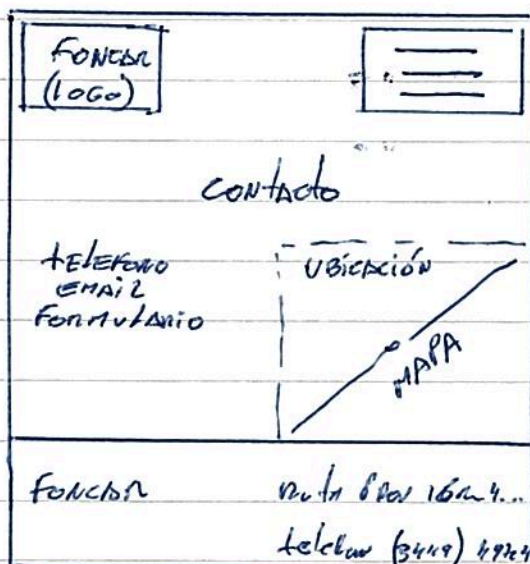 FONCAR
(LOGO)
CONTACTO
TELEFONO
EMAIL
FORMULARIO
UBICACIÓN
MAPA
FONCAR
Ruta
telefono (3449)